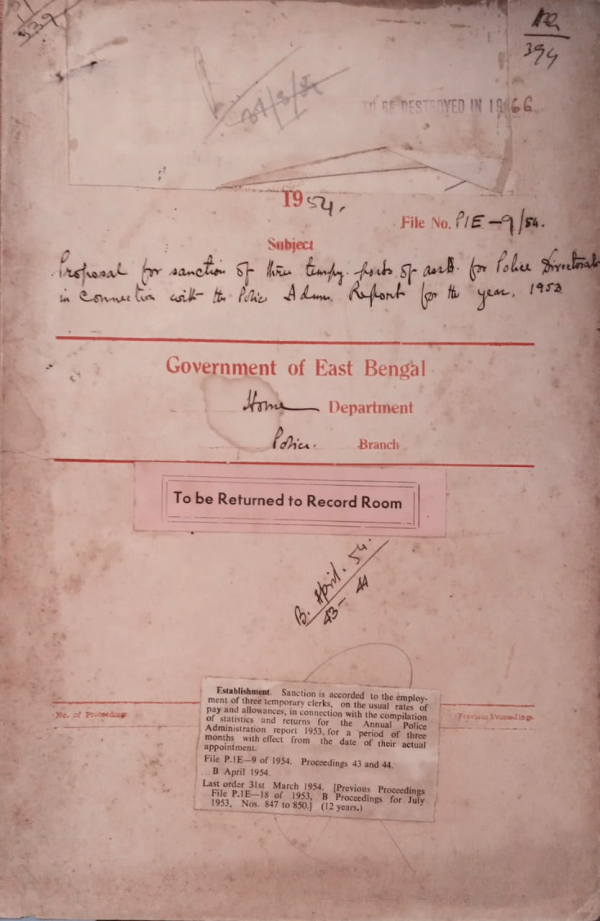 339
132
394
31/3/54
TO BE DESTROYED IN 1966
1954.
File No. P1E-9/54.
Subject
Proposal for sanction of three tempy. posts of asstt. for Police Directorate
in connection with the Police Admn. Report for the year, 1953
Government of East Bengal
Home Department
Police. Branch
To be Returned to Record Room
B. April. 54.
43-44
No. of Proceedings
Previous Proceedings
Establishment. Sanction is accorded to the employ-
ment of three temporary clerks, on the usual rates of
pay and allowances, in connection with the compilation
of statistics and returns for the Annual Police
Administration report 1953, for a period of three
months with effect from the date of their actual
appointment.
File P.1E—9 of 1954. Proceedings 43 and 44.
B April 1954.
Last order 31st March 1954. [Previous Proceedings
File P.1E—18 of 1953, B Proceedings for July
1953, Nos. 847 to 850.] (12 years.)